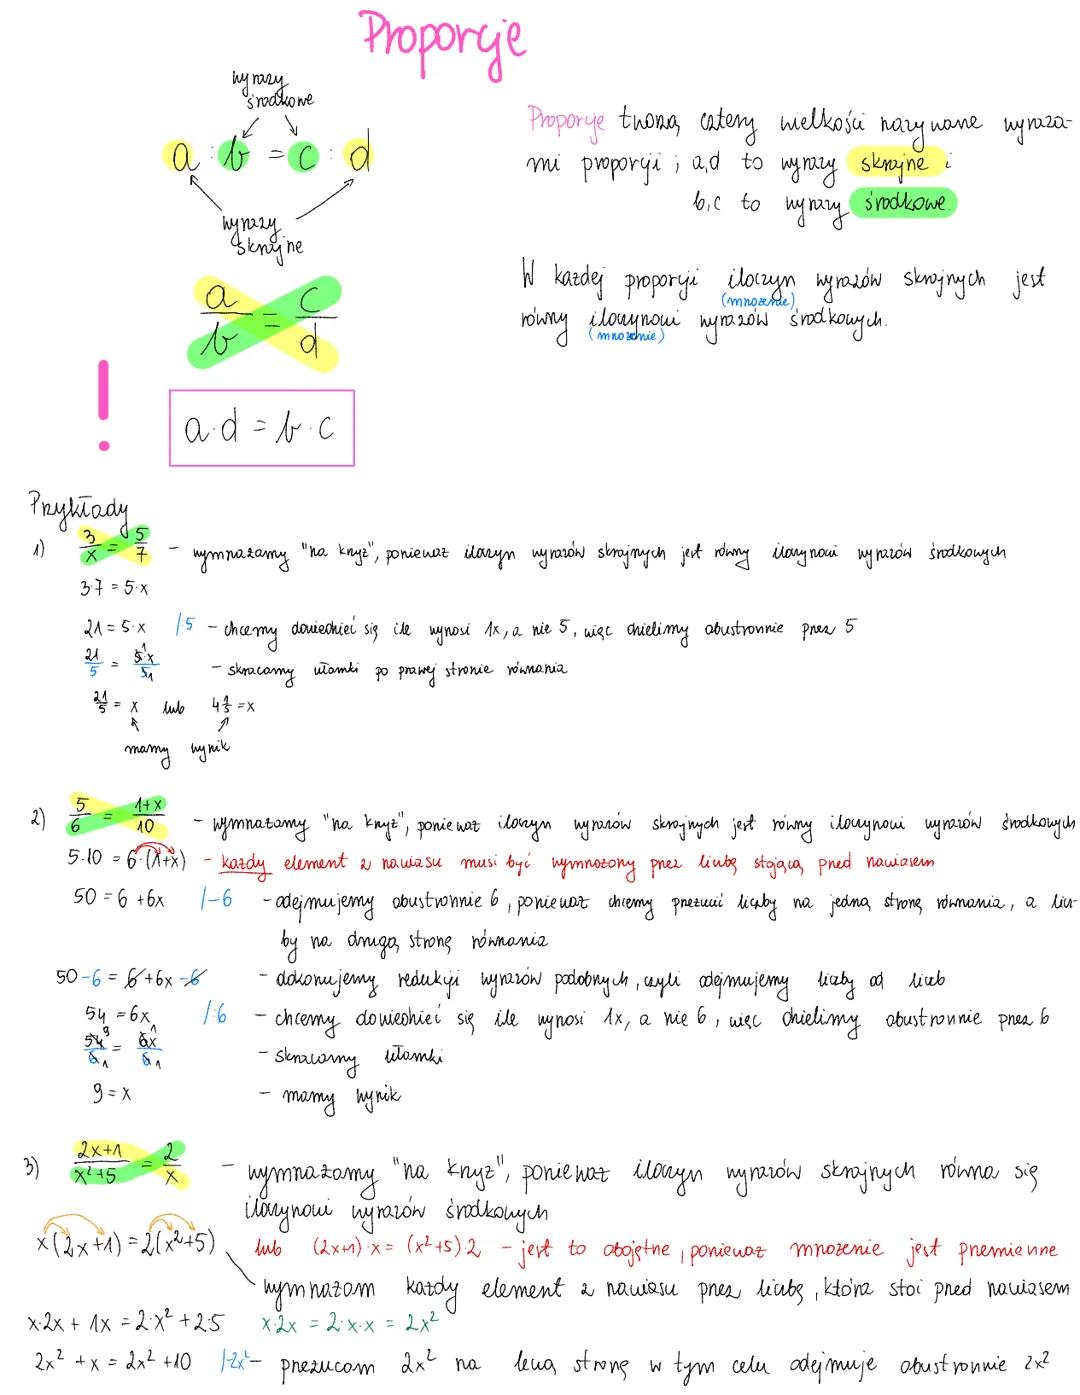 Proporcje
wyrazy
środkowe
a : b = c : d
wyrazy
skrajne
Proporcje tworzą cztery wielkości nazywane wyraza-
mi proporcji ; a,d to wyrazy skrajne i
b,c to wyrazy środkowe.
W każdej proporcji iloczyn wyrazów skrajnych jest
(mnożenie)
równy iloczynowi wyrazów środkowych.
(mnożenie)
a/b = c/d
!
a·d = b·c
Przykłady
1) 3/x = 5/7 - wymnażamy "na krzyż", ponieważ iloczyn wyrazów skrajnych jest równy iloczynowi wyrazów środkowych
3·7 = 5·x
21 = 5·x /:5 - chcemy dowiedzieć się ile wynosi 1x, a nie 5, więc dzielimy obustronnie przez 5
21/5 = 5¹x/5₁ - skracamy ułamki po prawej stronie równania
21/5 = x lub 4 1/5 = x
mamy wynik
2) 5/6 = 1+x/10 - wymnażamy "na krzyż", ponieważ iloczyn wyrazów skrajnych jest równy iloczynowi wyrazów środkowych
5·10 = 6·(1+x) - każdy element z nawiasu musi być wymnożony przez liczbę stojącą przed nawiasem
50 = 6 +6x /-6 - odejmujemy obustronnie 6, ponieważ chcemy przerzucić liczby na jedną stronę równania, a licz-
by na drugą stronę równania
50-6 = 6+6x -6 - dokonujemy redukcji wyrazów podobnych, czyli odejmujemy liczby od liczb
54 = 6x /:6 - chcemy dowiedzieć się ile wynosi 1x, a nie 6, więc dzielimy obustronnie przez 6
54⁹/6₁ = 6¹x/6₁ - skracamy ułamki
9 = x - mamy wynik
3) 2x+1/x²+5 = 2/x - wymnażamy "na krzyż", ponieważ iloczyn wyrazów skrajnych równa się
iloczynowi wyrazów środkowych
x(2x+1) = 2(x²+5) lub (2x+1)·x = (x²+5)·2 - jest to obojętne, ponieważ mnożenie jest przemienne
wymnażam każdy element z nawiasu przez liczbę, która stoi przed nawiasem
x·2x + 1x = 2·x² + 2·5 x·2x = 2·x·x = 2x²
2x² + x = 2x² +10 /-2x² - przerzucam 2x² na lewą stronę w tym celu odejmuje obustronnie 2x²